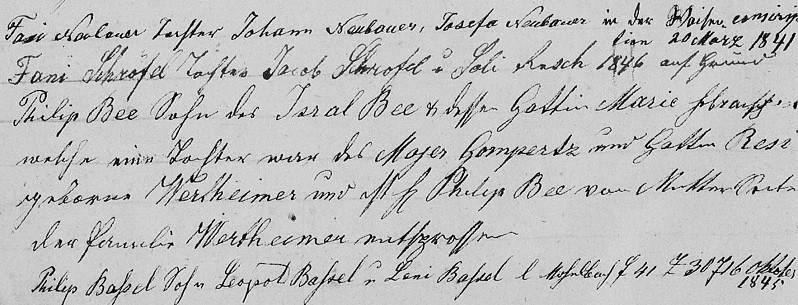 Fani Neubauer Tochter Johann Neubauer, Josefa Neubauer in der Waisen conscrip
tion 20 März 1841
Fani Schrofd Tochter Jacob Schrofd u Soli Resch 1846 auf Grund
Philip Bee Sohn des Isral Bee & dessen Gattin Marie
welche eine Tochter war des Majer Gompertz und Gattin Resi
geborne Wertheimer und ist H Philip Bee von Mutter Seite
der Familie Wertheimer entsprossen
Philip Bassel Sohn Leopold Bassel u Leni Bassel F 41 Z 307 16 Oktober
1845